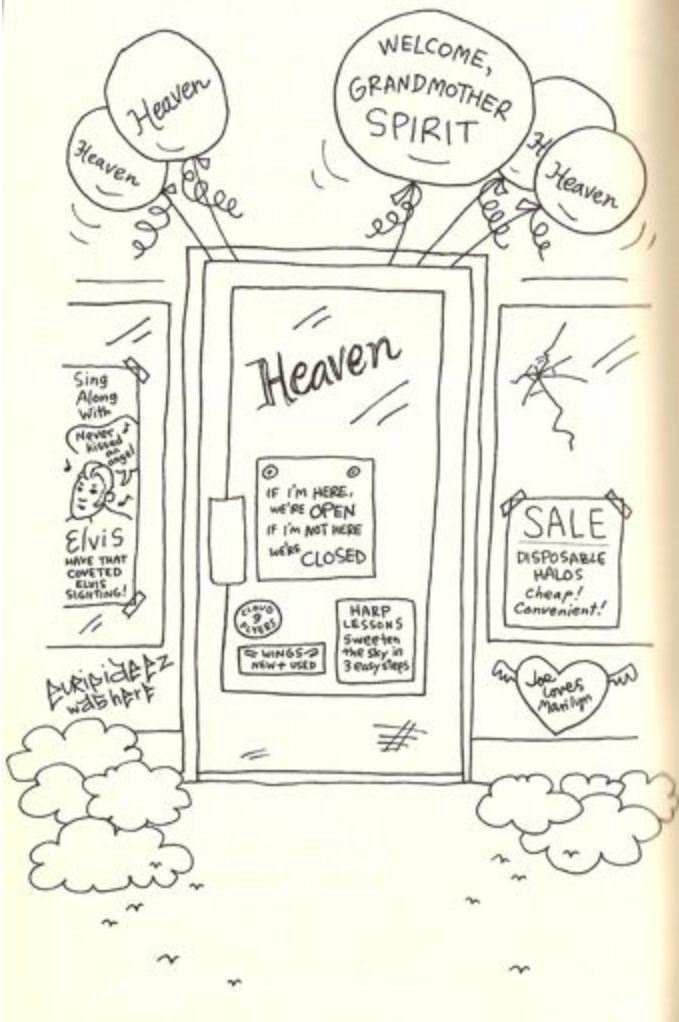 Heaven
Heaven
WELCOME,
GRANDMOTHER
SPIRIT
H
Heaven
Heaven
Sing
Along
With
Never
kissed
an
angel
Elvis
HAVE THAT
COVETED
ELVIS
SIGHTING!
IF I'M HERE,
WE'RE OPEN
IF I'M NOT HERE
WE'RE CLOSED
CLOUD
9
FLYERS
WINGS
NEW + USED
HARP
LESSONS
Sweeten
the sky in
3 easy steps
SALE
DISPOSABLE
HALOS
Cheap!
Convenient!
Euripideez
was here
Joe
Loves
Marilyn